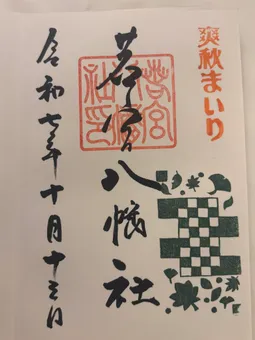 爽秋まいり
若宮八幡社
若宮八幡社印
令和七年十月十三日